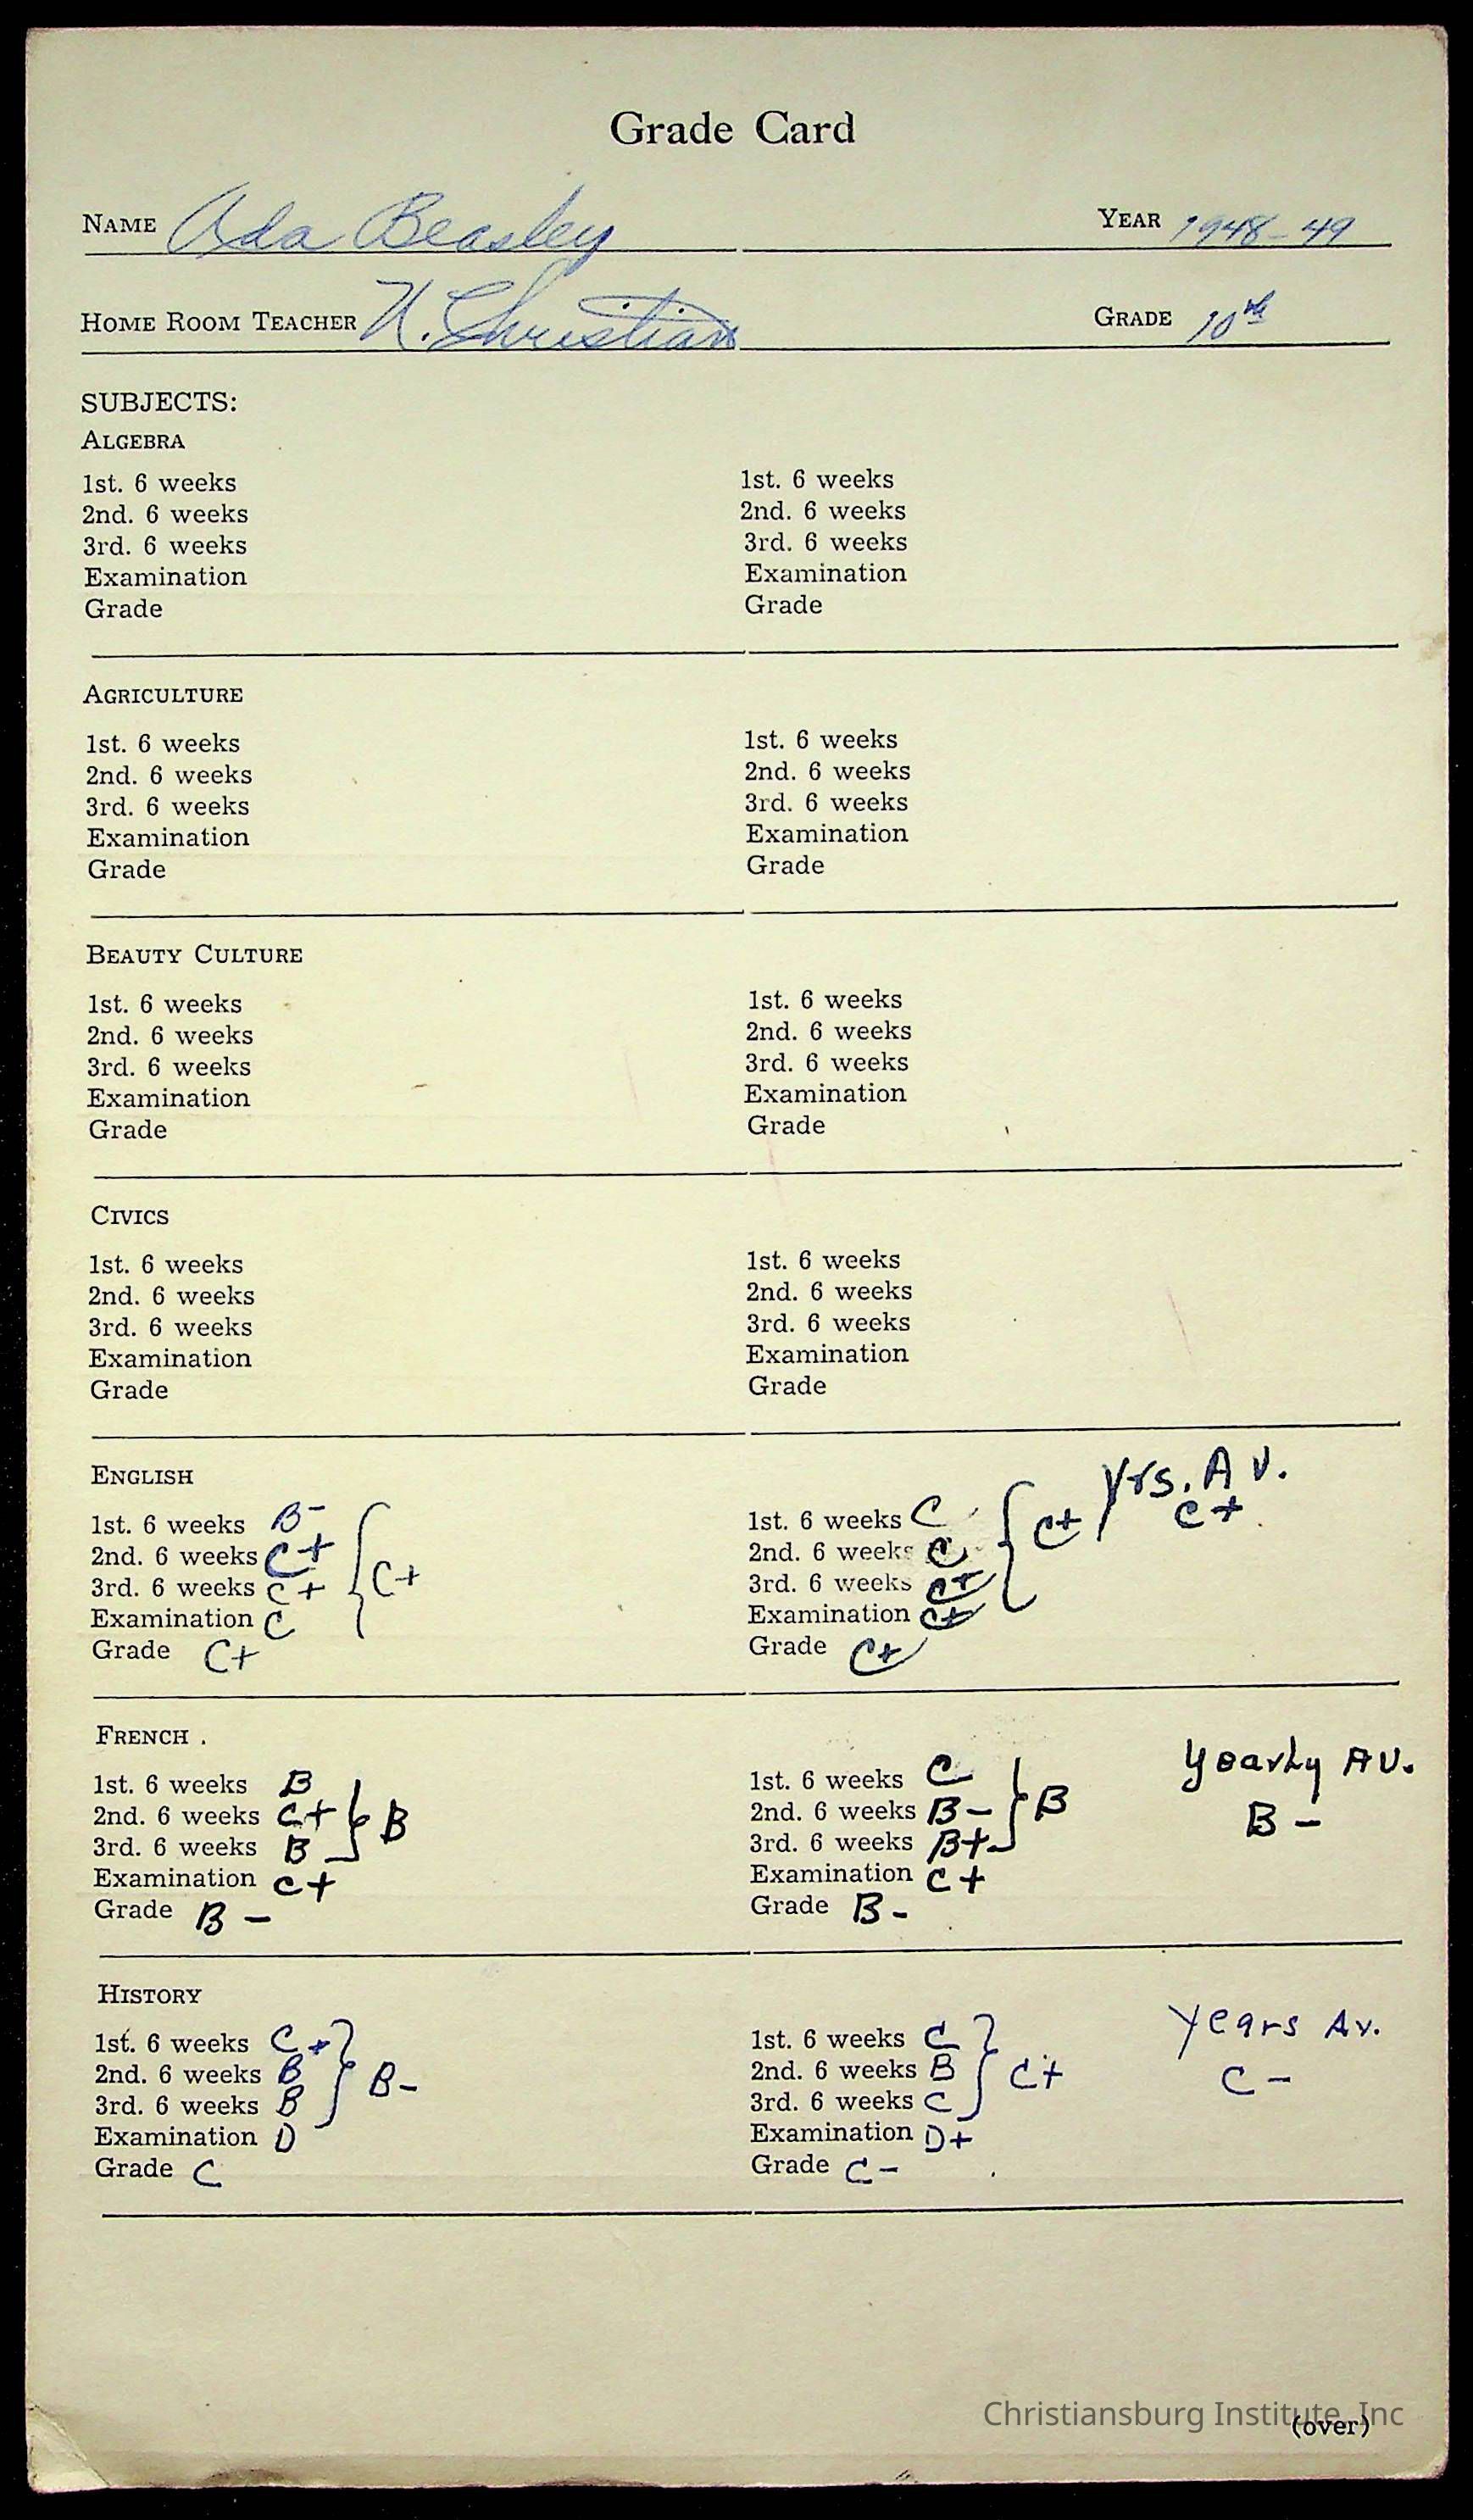 Grade Card
NAME Ada Beasley YEAR 1948-49
HOME ROOM TEACHER N. Christian GRADE 10th
SUBJECTS:
ALGEBRA
1st. 6 weeks 1st. 6 weeks
2nd. 6 weeks 2nd. 6 weeks
3rd. 6 weeks 3rd. 6 weeks
Examination Examination
Grade Grade
AGRICULTURE
1st. 6 weeks 1st. 6 weeks
2nd. 6 weeks 2nd. 6 weeks
3rd. 6 weeks 3rd. 6 weeks
Examination Examination
Grade Grade
BEAUTY CULTURE
1st. 6 weeks 1st. 6 weeks
2nd. 6 weeks 2nd. 6 weeks
3rd. 6 weeks 3rd. 6 weeks
Examination Examination
Grade Grade
CIVICS
1st. 6 weeks 1st. 6 weeks
2nd. 6 weeks 2nd. 6 weeks
3rd. 6 weeks 3rd. 6 weeks
Examination Examination
Grade Grade
ENGLISH Yrs. Av.
1st. 6 weeks B- 1st. 6 weeks C C+ C+
2nd. 6 weeks C+ 2nd. 6 weeks C
3rd. 6 weeks C+ C+ 3rd. 6 weeks C+
Examination C Examination C+
Grade C+ Grade C+
FRENCH . Yearly AV.
1st. 6 weeks B 1st. 6 weeks C
2nd. 6 weeks C+ B 2nd. 6 weeks B- B B-
3rd. 6 weeks B 3rd. 6 weeks B+
Examination C+ Examination C+
Grade B- Grade B-
HISTORY Years Av.
1st. 6 weeks C+ 1st. 6 weeks C
2nd. 6 weeks B B- 2nd. 6 weeks B C+ C-
3rd. 6 weeks B 3rd. 6 weeks C
Examination D Examination D+
Grade C Grade C-
Christiansburg Institute, Inc
(over)